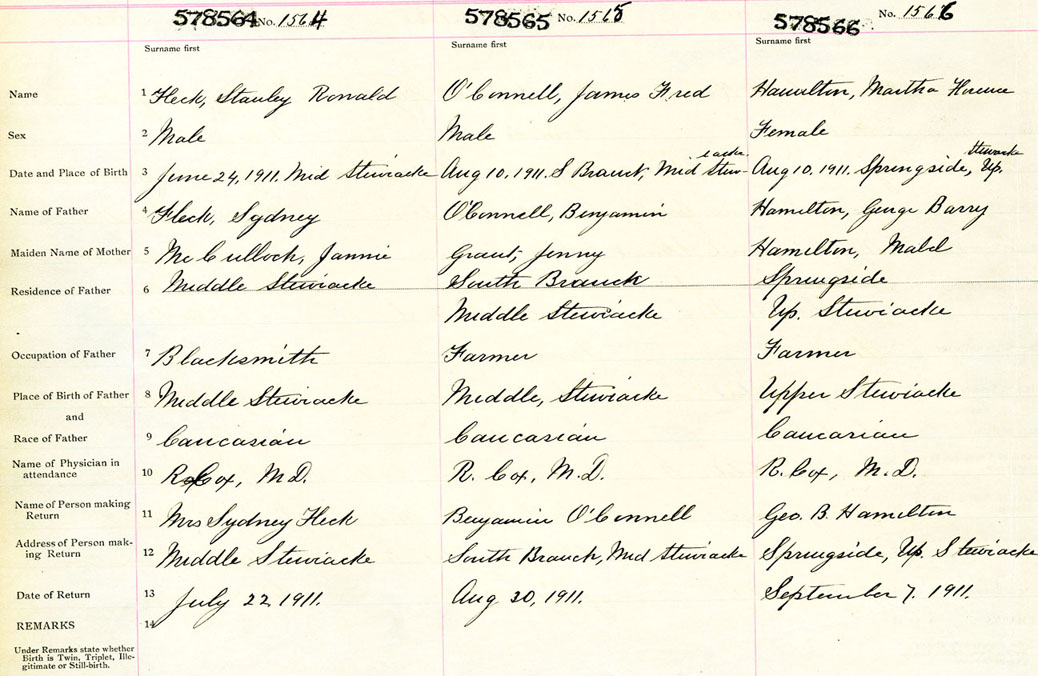 578564 No. 1564 578565 No. 1565 578566 No. 1566
Surname first Surname first Surname first
Name 1 Fleck, Stanley Ronald O'Connell, James Fred Hamilton, Martha Florence
Sex 2 Male Male Female
iacke. Stewiacke
Date and Place of Birth 3 June 24, 1911. Mid Stewiacke Aug 10, 1911. S Branch, Mid Stew- Aug 10, 1911. Springside, Up.
Name of Father 4 Fleck, Sydney O'Connell, Benjamin Hamilton, George Barry
Maiden Name of Mother 5 Mc Cullock, Jannie Grant, Jenny Hamilton, Mabel
Residence of Father 6 Middle Stewiacke South Branch Springside
Middle Stewiacke Up. Stewiacke
Occupation of Father 7 Blacksmith Farmer Farmer
Place of Birth of Father 8 Middle Stewiacke Middle, Stewiacke Upper Stewiacke
and
Race of Father 9 Caucasian Caucasian Caucasian
Name of Physician in
attendance 10 R Cox, M.D. R. Cox, M.D. R. Cox, M.D.
Name of Person making
Return 11 Mrs Sydney Fleck Benjamin O'Connell Geo. B. Hamilton
Address of Person mak-
ing Return 12 Middle Stewiacke South Branch, Mid Stewiacke Springside, Up. Stewiacke
Date of Return 13 July 22 1911. Aug 30, 1911. September 7, 1911.
REMARKS 14
Under Remarks state whether
Birth is Twin, Triplet, Ille-
gitimate or Still-birth.